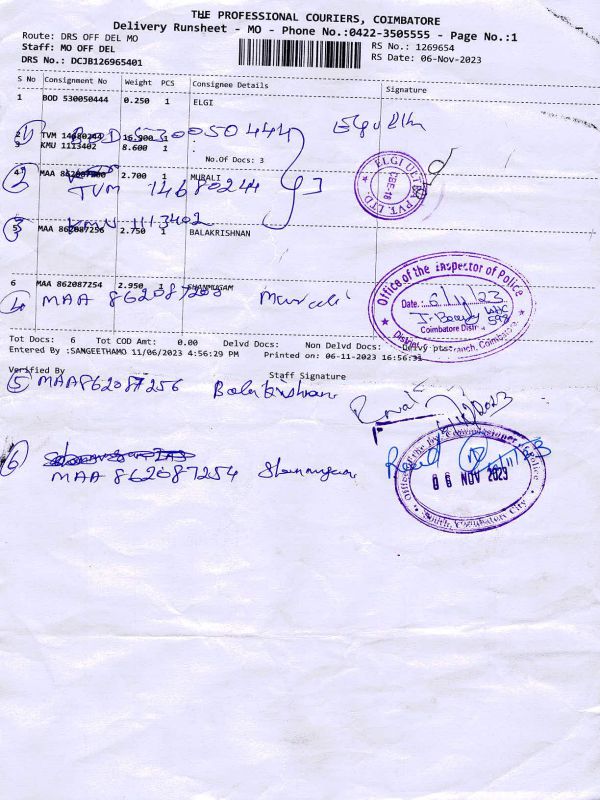 THE PROFESSIONAL COURIERS, COIMBATORE
Delivery Runsheet - MO - Phone No.:0422-3505555 - Page No.:1
Route: DRS OFF DEL MO
RS No.: 1269654
Staff: MO OFF DEL
DRS No.: DCJB126965401
RS Date: 06-Nov-2023
S No Consignment No Weight PCS Consignee Details Signature
1 BOD 530050444 0.250 1 ELGI
2 TVM 14680244 1
BOD 530050444
3 KMU 1113402 8.600 1
No.Of Docs: 3
ELGI
PVT. LTD
4 MAA 2.700 1 MURALI
TVM 14680244
KMU 1113402
5 MAA 862087256 2.750 1 BALAKRISHNAN
6 MAA 862087254 2.950 1 SHANMUGAM
MAA Murali
Office of the Inspector of Police
Date: 6/11/23
Coimbatore
Tot Docs: 6 Tot COD Amt: 0.00 Delvd Docs: Non Delvd Docs: Delvy pts:
Entered By :SANGEETHAMO 11/06/2023 4:56:29 PM Printed on: 06-11-2023 16:56:31
Verified By Staff Signature
5 MAA862087256 Balakrishnan
6
MAA 862087254 Shanmugam
06 NOV 2023
South, Coimbatore City